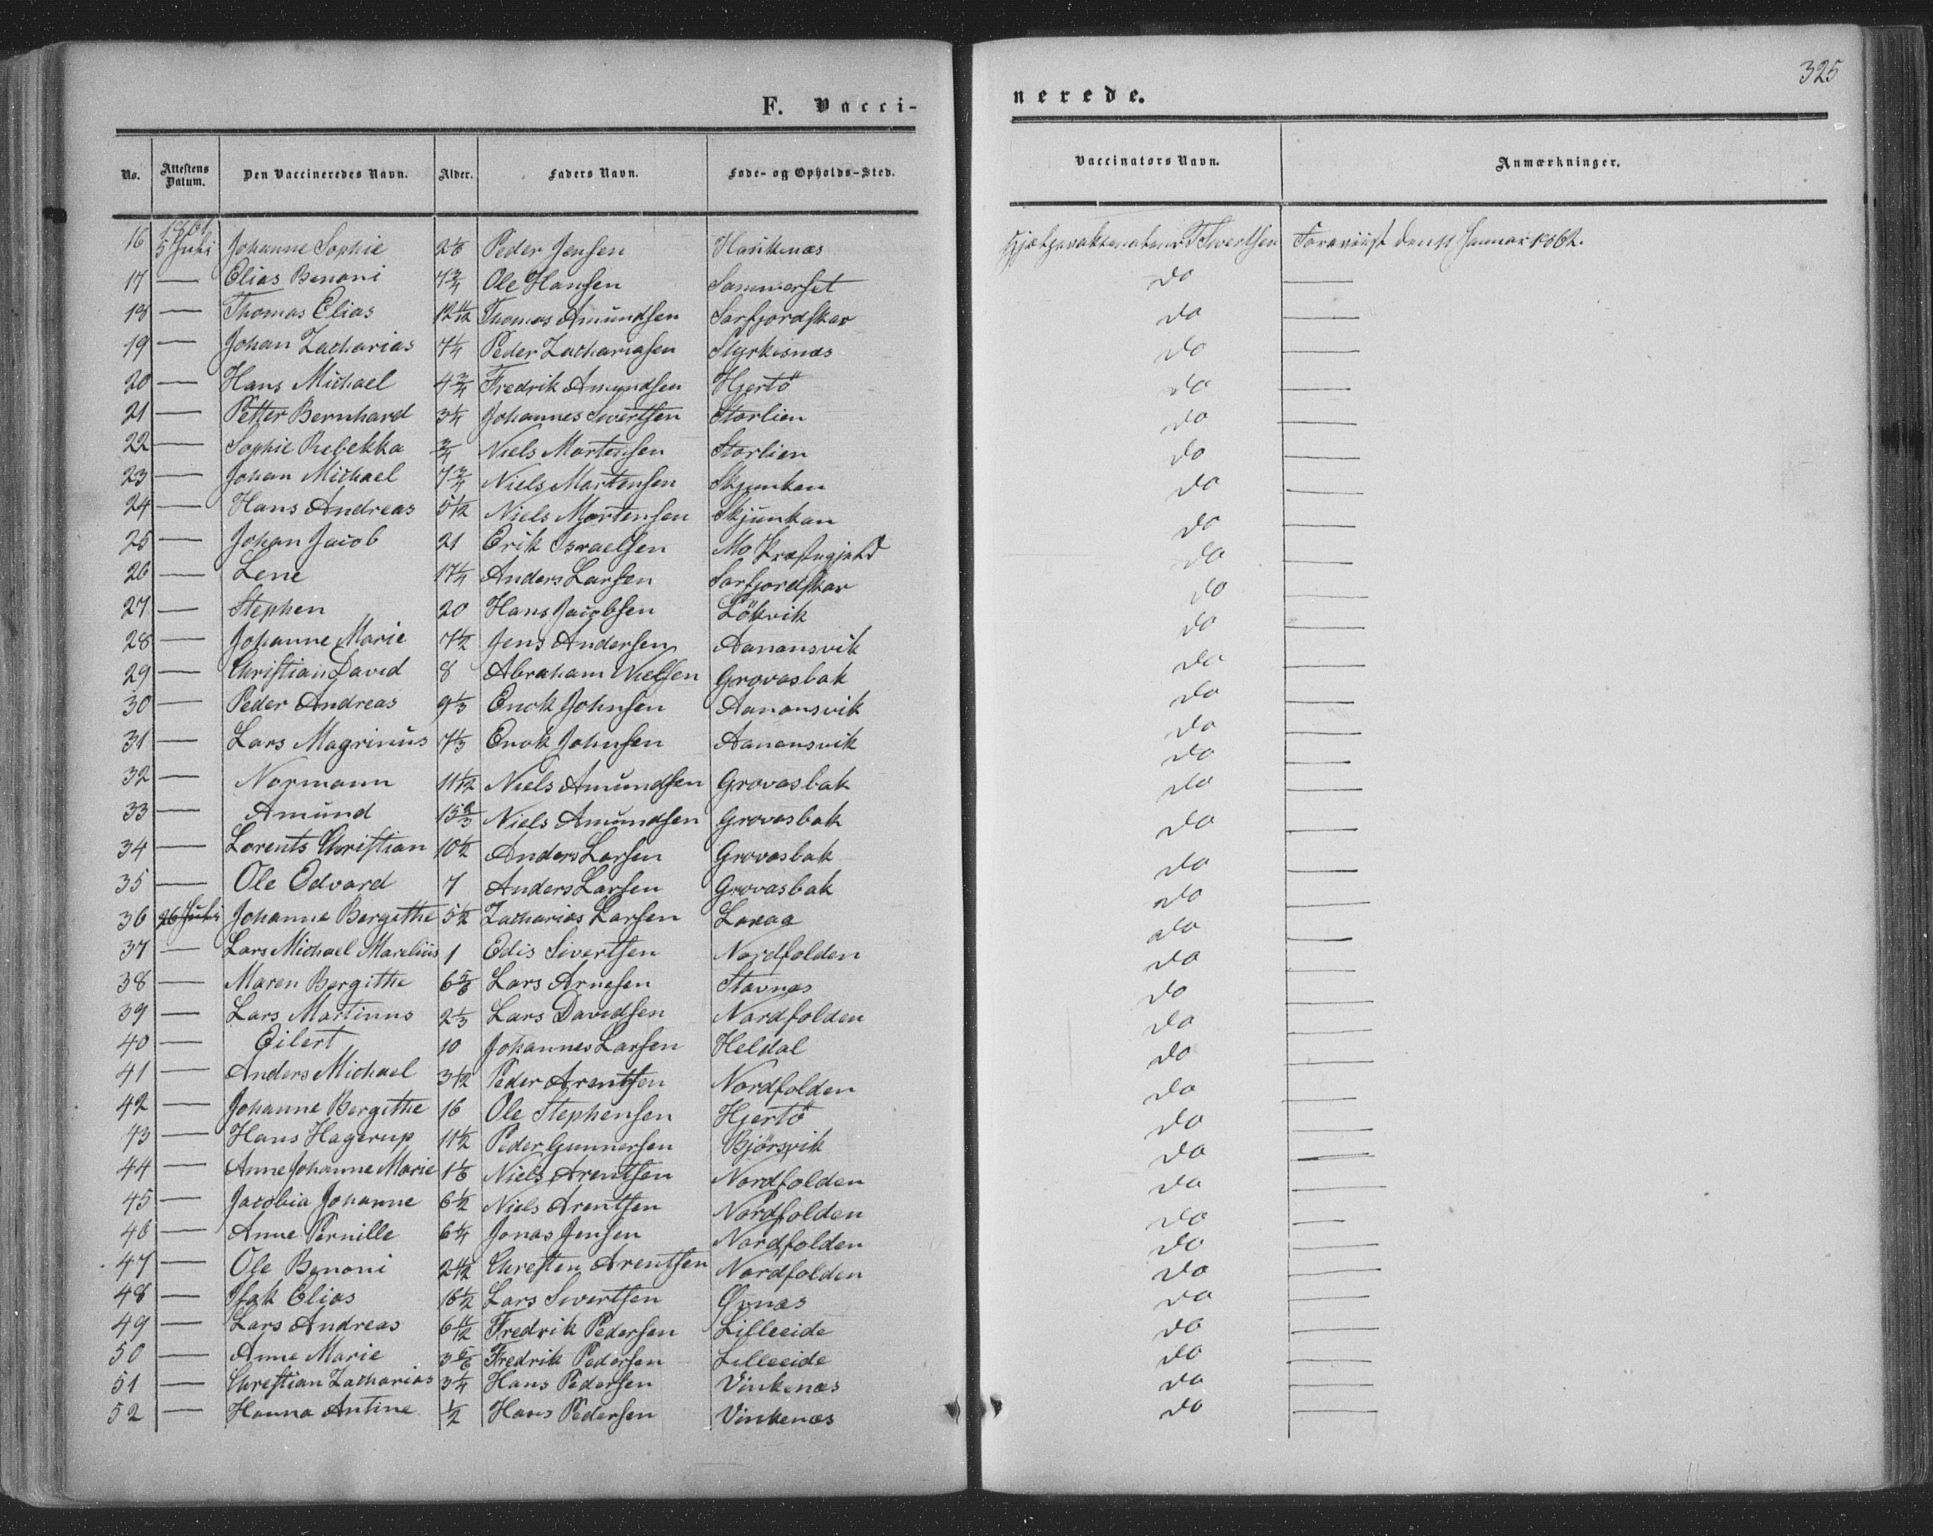 325
F. Vacci-
nerede.
No. Attestens Datum. Den Vaccineredes Navn. Alder. Faders Navn. Føde- og Opholds-Sted. Vaccinators Navn. Anmærkninger.
1861
16 5 Juli Johanne Sophie Peder Jensen Sivertsen 1862.
17 — Elias Benoni 7 3/4 Ole Hansen do —
18 — Thomas Elias 12 11/12 Thomas Amundsen Sørfjordskar do —
19 — Johan Zacharias 7 1/4 Peder Zachariasen Styrkisnæs do —
20 — Hans Michael 4 3/4 Fredrik Amundsen Hjertö do —
21 — Petter Bernhard 3 1/4 Johannes Sivertsen Storlien do —
22 — Sophie Rebekka 3/4 Niels Mortensen Storlien do —
23 — Johan Michael 7 3/4 Niels Martensen Skjunkan do —
24 — Hans Andreas 5 1/2 Niels Mortensen Skjunkan do —
25 — Johan Jacob 21 Erik Israelsen Mo Præstegjeld do —
26 — Lene 17 1/4 Anders Larsen Sørfjordskar do —
27 — Stephen 20 Hans Jacobsen Lökvik do —
28 — Johanne Marie 7 1/2 Jens Andersen Aanansvik do —
29 — Christian David 8 Abraham Nielsen Grovasbak do —
30 — Peder Andreas 9 1/3 Enok Johnsen Aanansvik do —
31 — Lars Magrinus 7 1/3 Enok Johnsen Aanansvik do —
32 — Normann 11 1/2 Niels Amundsen Grovasbak do —
33 — Amund 15 2/3 Niels Amundsen Grovasbak do —
34 — Lorents Christian 10 1/2 Anders Larsen Grovasbak do —
35 — Ole Edvard 7 Anders Larsen Grovasbak do —
36 26 Juli Johanne Bergithe 5 1/2 Zacharias Larsen do —
37 — Lars Michael Marelius 1 Edis Sivertsen Nordfolden do —
38 — Maren Bergithe 6 5/6 Lars Arnesen Stavnes do —
39 — Lars Martinus 2 1/3 Lars Davidsen Nordfolden do —
40 — Eilert 10 Johannes Larsen Heldal do —
41 — Anders Michael 3 1/2 Peder Arentsen Nordfolden do —
42 — Johanne Bergithe 16 Ole Stephensen Hjertö do —
43 — Hans Hagerup 11 1/2 Peder Gunnersen Bjørsvik do —
44 — Anne Johanne Marie 1 1/6 Niels Arentsen Nordfolden do —
45 — Jacobia Johanne 6 1/2 Niels Arentsen Nordfolden do —
46 — Anne Pernille 6 1/4 Jonas Jensen Nordfolden do —
47 — Ole Benoni Christen Arentsen Nordfolden do —
48 — Isak Elias 16 1/2 Lars Sivertsen do —
49 — Lars Andreas 6 11/12 Fredrik Pedersen Lilleeide do —
50 — Anne Marie 3 5/6 Fredrik Pedersen Lilleeide do —
51 — Christian Zacharias 3 1/4 Hans Pedersen Vinkenæs do —
52 — Hanna Antine 1/2 Hans Pedersen Vinkenæs do —